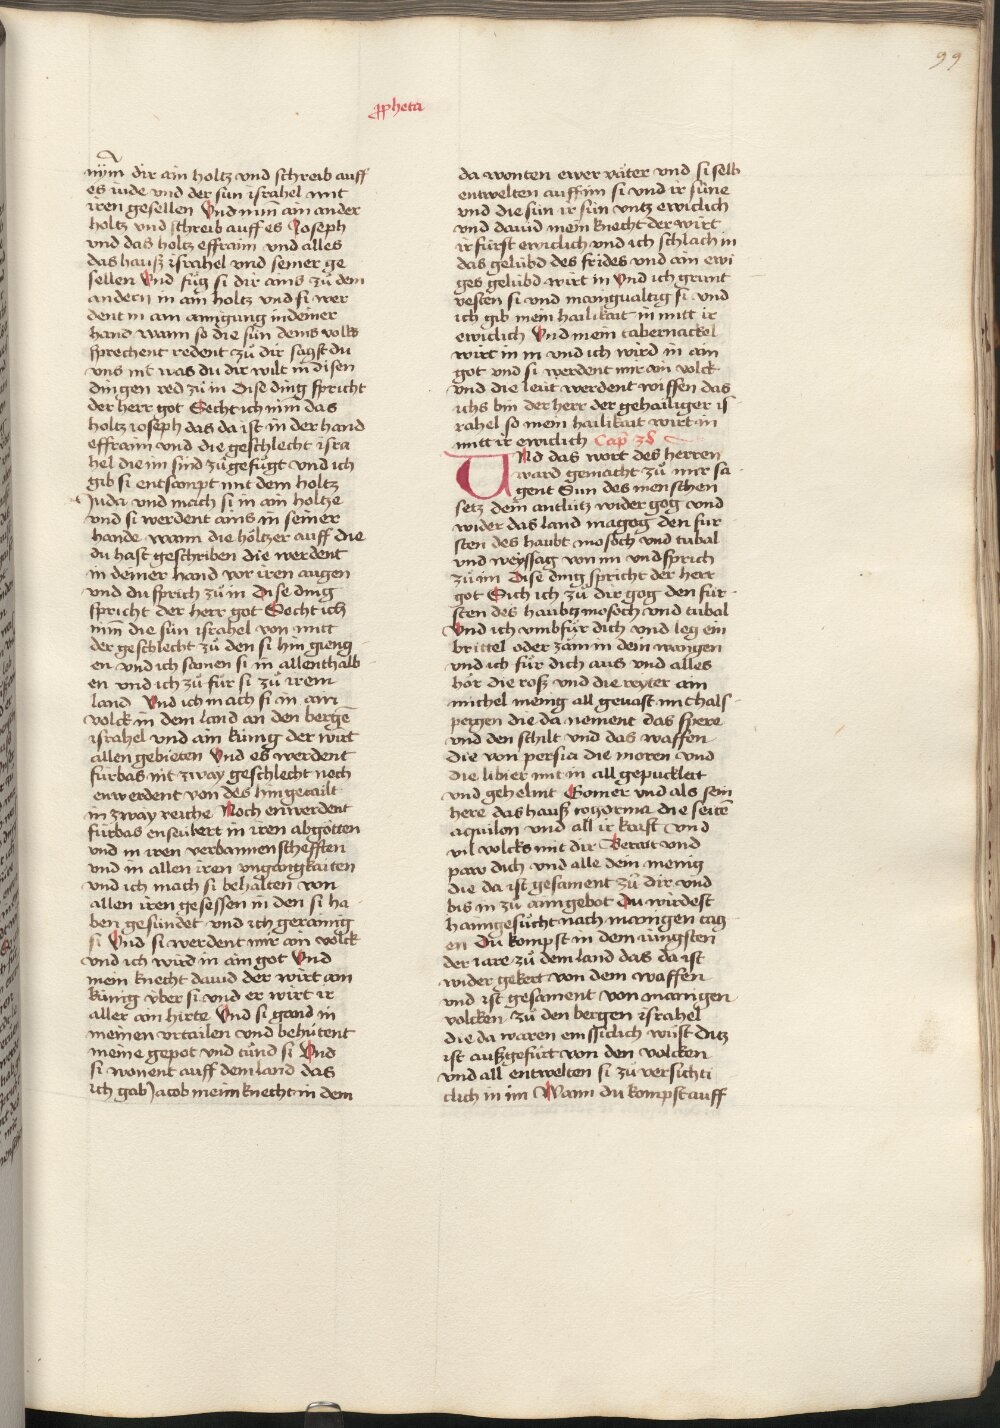 99
ꝓpheta
nÿm dir ain holtz vnd schreib auff
es iude vnd der sün israhel mit
iren gesellen Vnd nim ain ander
holtz vnd schreib auff es Joseph
vnd das holtz effraim vnd alles
das hauß israhel vnd seiner ge
sellen Vnd füg si dir ains zů dem
andern in ain holtz vnd si wer
dent in ain ainigung in deiner
hand wann so die sün deins volks
sprechent redent zů dir sagst du
vns nit was du dir wilt in disen
dingen red zů in Dise ding spricht
der herr got Secht ich nim̄ das
holtz ioseph das da ist in der hand
effraim vnd die geschlecht isra
hel die im sind zů gefügt vnd ich
gib si entsampt mit dem holtz
Juda vnd mach si in ain holtze
vnd si werdent ains in seiner
hande wann die höltzer auff die
du hast geschriben die werdent
in deiner hand vor iren augen
vnd du sprich zů in Dise ding
spricht der herr got Secht ich
nim̄ die sün israhel von mitt
der geschlecht zů den si hin gieng
en vnd ich samen si in allenthalb
en vnd ich zů für si zů irem
land Vnd ich mach si in ain
volck in dem land an den bergē
israhel vnd ain künig der wirt
allen gebieten Vnd es werdent
fürbas nit zway geschlecht noch
enwerdent von des hin getailt
in zway reiche Noch enwerdent
fürbas enseubert in iren abgötten
vnd in iren verbannenschefften
vnd in allen iren vngangkaiten
vnd ich mach si behalten von
allen iren gesessen in den si ha
ben gesündet vnd ich gerainig
si Vnd si werdent mir ain volck
vnd ich wird in ain got Vnd
mein knecht dauid der wirt ain
künig über si vnd er wirt ir
aller ain hirte Vnd si gand in
meinen vrtailen vnd behütent
meine gepot vnd tünd si Vnd
si wonent auff dem land das
ich gab Jacob meim knecht in dem
da wonten ewer väter vnd si selb
entwelten auff im si vnd ir süne
vnd die sün ir sün vntz ewiclich
vnd dauid mein knecht der wirt
ir fürst ewiclich vnd ich schlach in
das gelübd des frides vnd ain ewi
ges gelübd wirt in Vnd ich grunt
vesten si vnd manigualtig si vnd
ich gib mein hailikait in mitt ir
ewiclich Vnd mein tabernackel
wirt in in vnd ich wird in ain
got vnd si werdent mir ain volck
vnd die leüt werdent wissen das
ichs bin der herr der gehailiger is
rahel so mein hailikait wirt in
mitt ir ewiclich Cap̄ 38
UNd das wort des herren
ward gemacht zů mir sa
gent Sun des menschen
setz dein antlütz wider gog vnd
wider das land magog den für
sten des haubt mosoch vnd tubal
vnd weyssag von im vnd sprich
zů im Dise ding spricht der herr
got Sich ich zů dir gog den für
sten des haubtz mosoch vnd tubal
Vnd ich vmbfür dich vnd leg ein
brittel oder zäm in dein wangen
vnd ich für dich aus vnd alles
hör die roß vnd die reyter ain
michel menig all geuast mit hals
pergen die da nement das spere
vnd den schilt vnd das waffen
die von persia die moren vnd
die libier mit in all gepucklett
vnd gehelmt Gomer vnd als sein
here das hauß togorma die seitē
aquilon vnd all ir kraft vnd
vil volcks mit dir Berait vnd
paw dich vnd alle dein menig
die da ist gesament zů dir vnd
bis in zů aim gebot Du wirdest
haimgesücht nach mangen tag
en Du kompst in dem iüngsten
der iare zů dem land das da ist
wider gekert von dem waffen
vnd ist gesament von manigen
volcken zů den bergen israhel
die da waren emssiclich wüst ditz
ist außgefürt von den volcken
vnd all entwelten si zů versichti
clich in im Wann du kompst auff